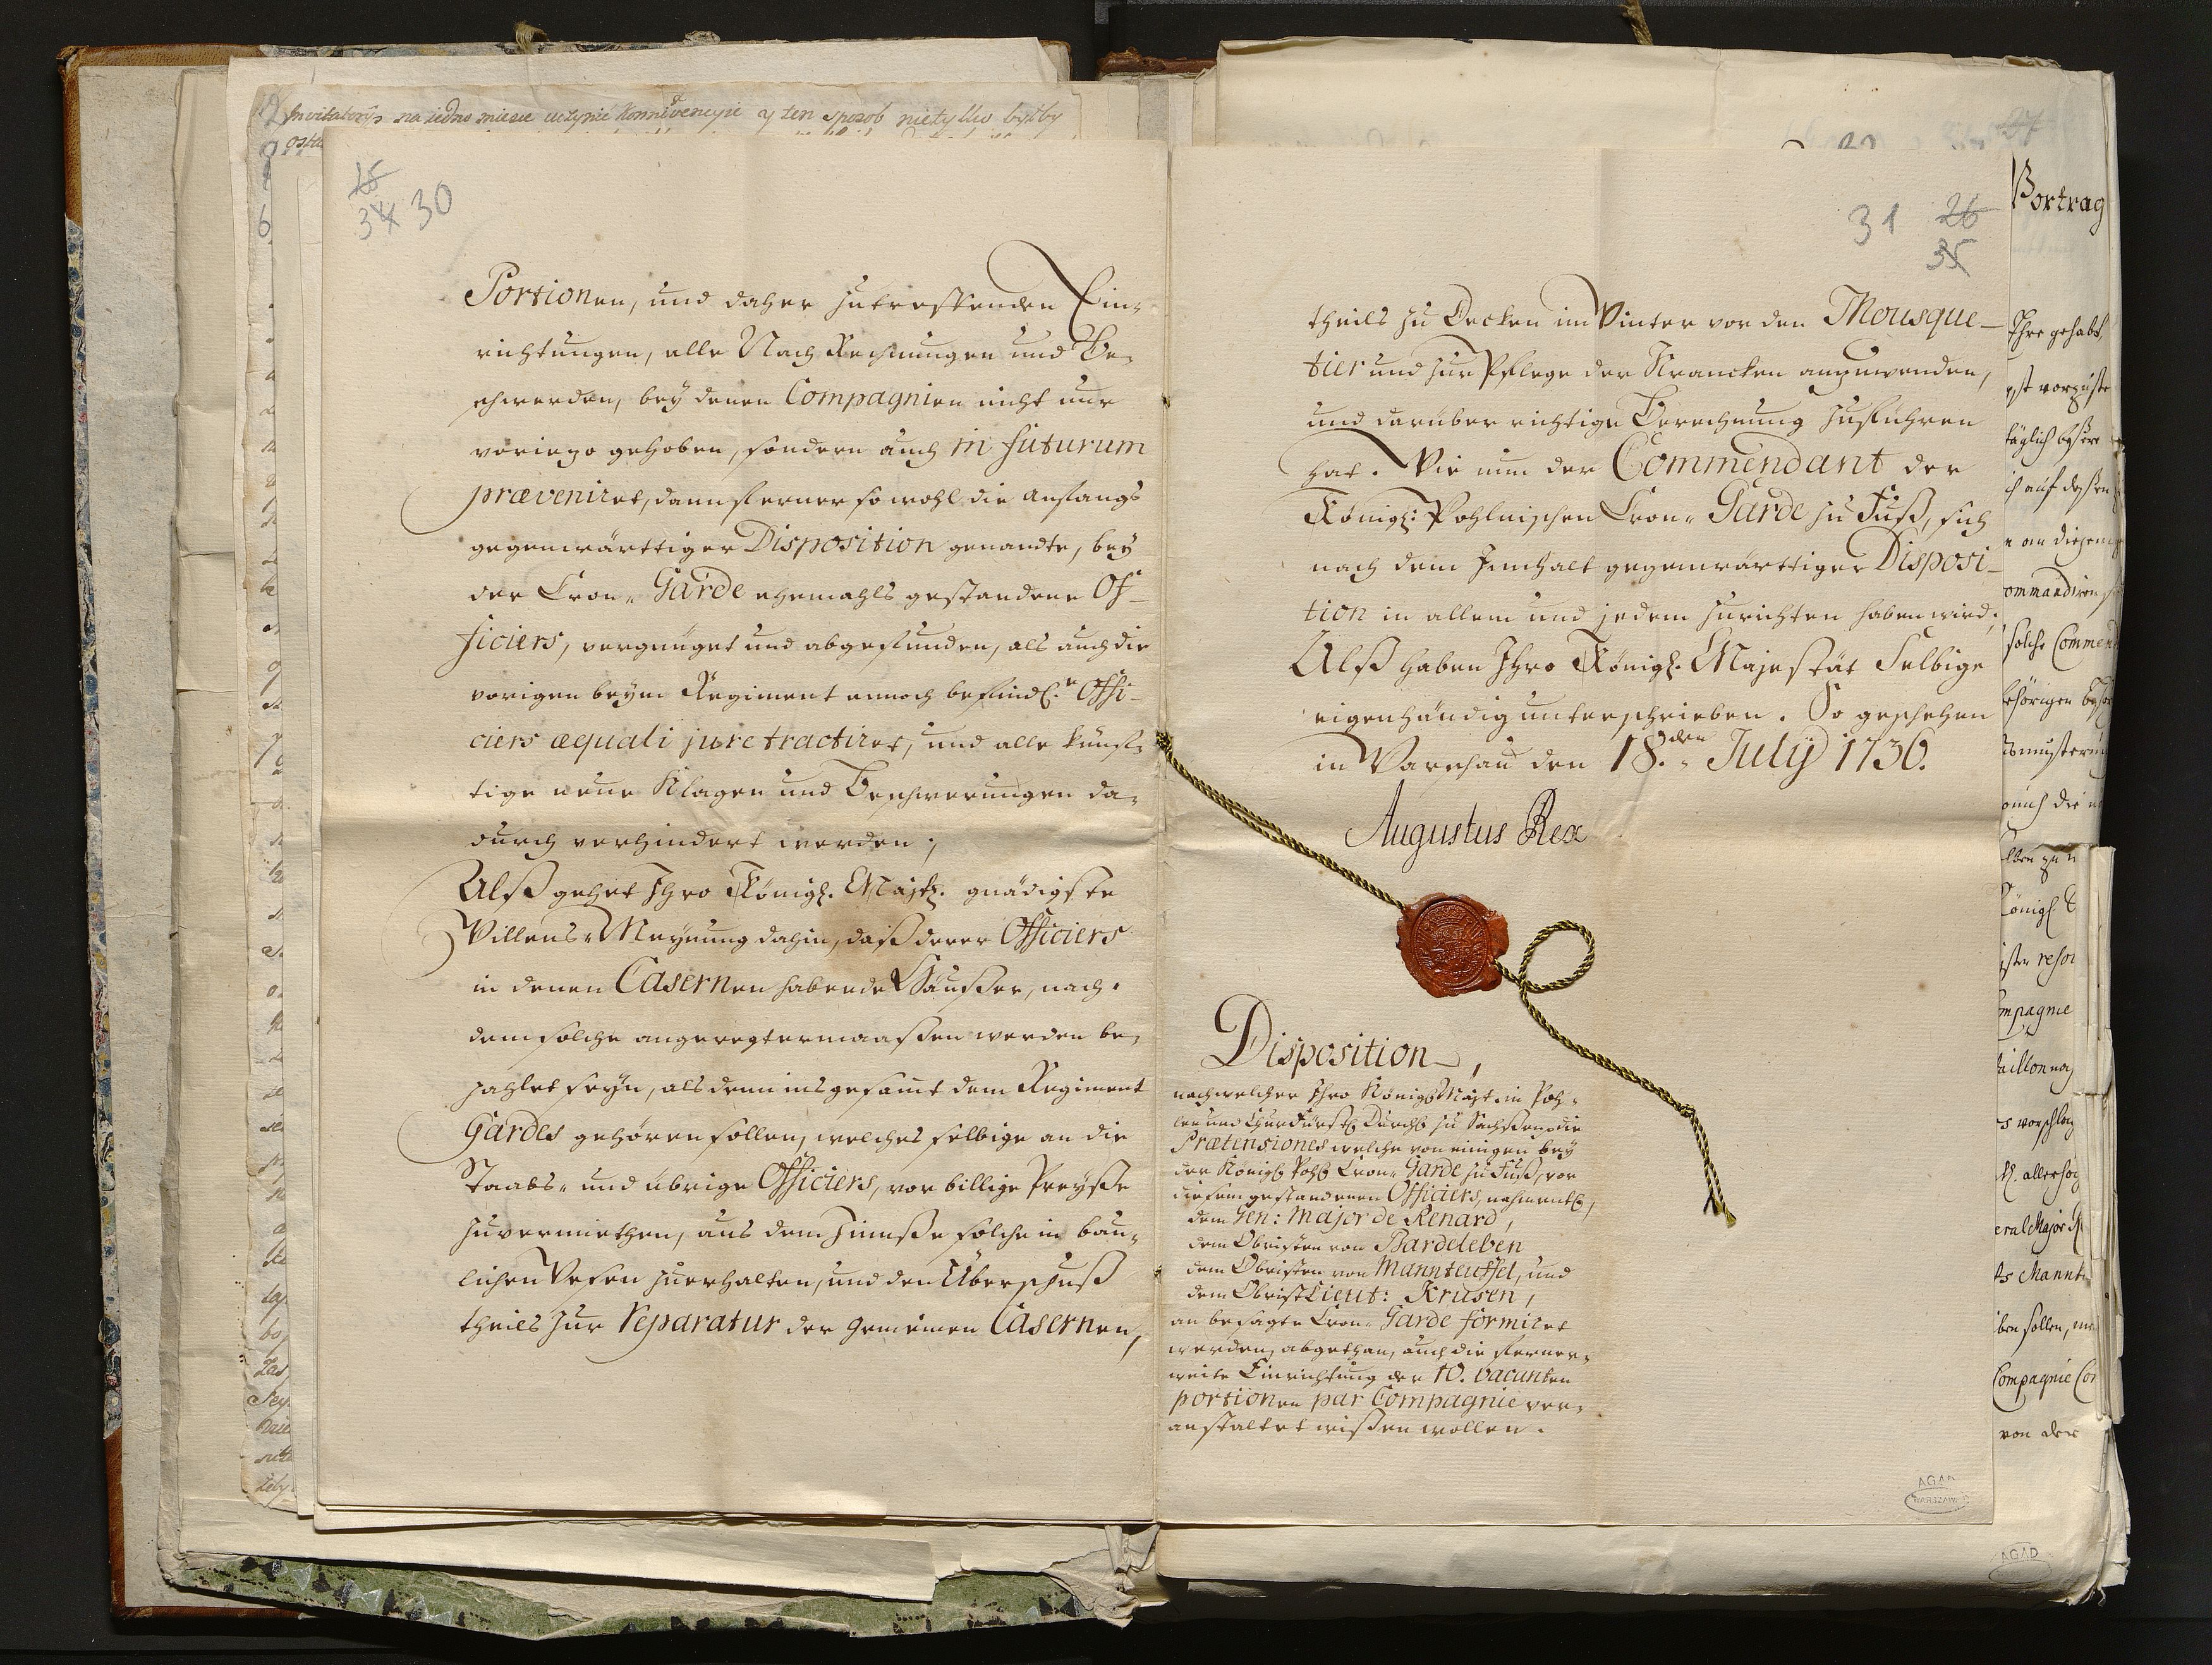 Invitatorys na iedno miesce uczynić Konniwencyie y ten sposob nietylko byłby
30
Portionen, und daher zutreffenden Ein-
richtungen, alle Nach Rechnungen und Be-
schwerden, bey denen Compagnien nicht nur
voriezo gehoben, sondern auch in futurum
præveniret, dann ferner sowohl die anfangs
gegenwärttiger Disposition genandte, bey
der Cron-Garde ehemahls gestandene Of-
ficiers, vergnüget und abgefunden, als auch die
vorigen beym Regiment annoch befindl.n Offi-
ciers æquali jure tractiret, und alle künff-
tige neue Klagen und Beschwerungen da-
durch verhindert werden;
Alß gehet Ihro Königl. Majtt. gnädigste
Willens-Meynung dahin, daß derer Officiers
in denen Casernen habende Häußer, nach-
dem solche angeregtermaaßen werden be-
zahlet seyn, alsdenn insgesamt dem Regiment
Gardes gehören sollen, welches selbige an die
Staabs- und übrige Officiers, vor billige Preyße
zuvermiethen, aus dem Zinnße solche in bau-
lichen Wesen zuerhalten, und den Überschuß
theils zur Reparatur der Gemeinen Casernen,
31 26
35
theils zu Decken im Winter vor den Mousque-
tier und zur Pflege der Krancken anzuwenden,
und darüber richtige Berechnung zuführen
hat. Wie nun der Commendant der
Königl: Pohlnischen Cron-Garde zu Fuß, sich
nach dem Innhalt gegenwärttiger Disposi-
tion in allem und jedem zurichten haben wird;
Alß haben Ihro Königl. Majestät Selbige
eigenhändig unterschrieben. So geschehen
in Warschau den 18.den July 1736.
Augustus Rex
Disposition,
nach welcher Ihro Königl Majt. in Poh-
len und Churfürstl Durchl zu Sachßen die
Prætensiones welche von einigen bey
der Königl Pohl Cron-Garde zu Fuß, vor
diesem gestandenen Officiers, nahmentl,
dem Gen: Major de Renard,
dem Obristen von Bardeleben
dem Obristen von Mannteuffel, und
dem ObristLieut: Krusen,
an besagte Cron-Garde formiret
werden, abgethan, auch die ferner-
weite Einrichtung der 10. vacanten
portionen par Compagnie ver-
anstaltet wißen wollen.
AGAD
WARSZAWA
Vortrag
Ihre gehabt,
täglich
auf deßen
solche Commend
Königl
Compagnie Co
von der
AGAD